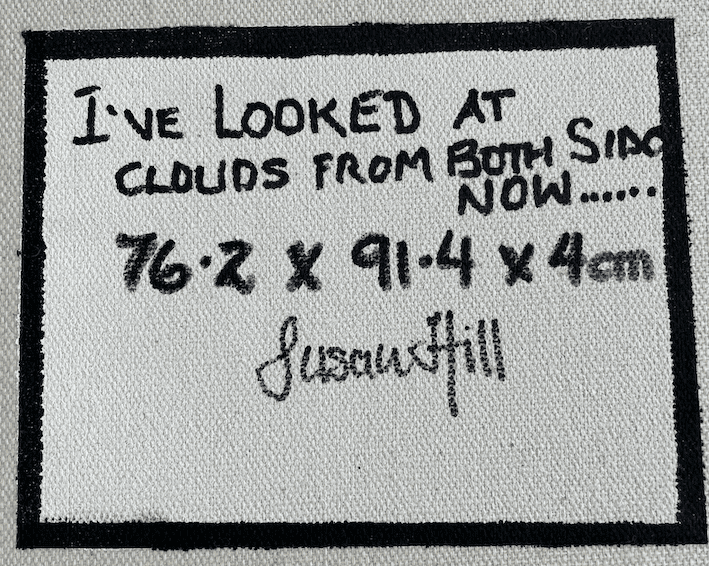 I'VE LOOKED AT
CLOUDS FROM BOTH SIDES
NOW......
76.2 x 91.4 x 4cm
Susan Hill